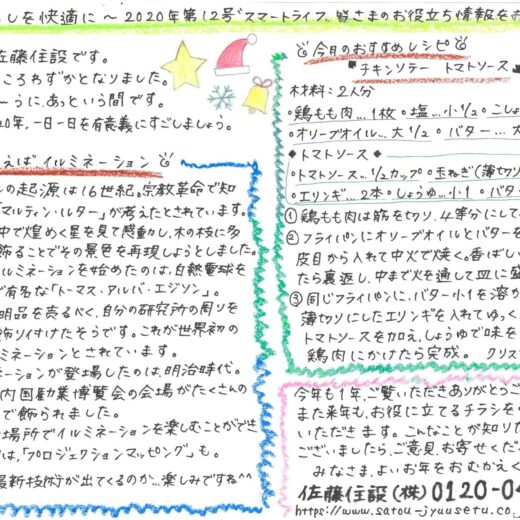 しを快適に～2020年第12号"スマートライフ"皆さまのお役立ち情報をお
佐藤住設です。
ころわずかとなりました。
～うに、あっという間です。
20年、一日一日を有意義にすごしましょう。
えばイルミネーション
の起源は16世紀。宗教革命で知
「マルティン・ルター」が考えたとされています。
中で煌めく星を見て感動し、木の枝に多
飾ることでその景色を再現しようとしました。
ルミネーションを始めたのは、白熱電球を
で有名な「トーマス・アルバ・エジソン」。
明品を売るべく、自分の研究所の周りを
飾り付けたそうです。これが世界初の
ミネーションとされています。
ーションが登場したのは、明治時代。
内国勧業博覧会の会場がたくさんの
で飾られました。
場所でイルミネーションを楽しむことができ
は、「プロジェクションマッピング」も。
最新技術が出てくるのか…楽しみですね^^
今月のおすすめレシピ
チキンソテー トマトソース
材料：2人分
・鶏もも肉…1枚 ・塩…小1/2 ・こしょ
・オリーブオイル…大1/2 ・バター…大
◆トマトソース◆
・トマトソース…1/2カップ ・玉ねぎ(薄切り
・エリンギ…2本 ・しょうゆ…小1 ・バター
①鶏もも肉は筋を切り、4等分にして
②フライパンにオリーブオイルとバターを
皮目から入れて中火で焼く。香ばしい
たら裏返し、中まで火を通して皿に盛
③同じフライパンに、バター小1を溶か
薄切りにしたエリンギを入れてゆっく
トマトソースを加え、しょうゆで味を
鶏肉にかけたら完成。 クリス
今年も1年、ご覧いただきありがとうご
また来年も、お役に立てるチラシを
いただきます。こんなことが知りた
ございましたら、ご意見、お寄せくださ
みなさま、よいお年をおむかえく
佐藤住設(株)0120-04
https://www.satou-jyuusetu.co.j